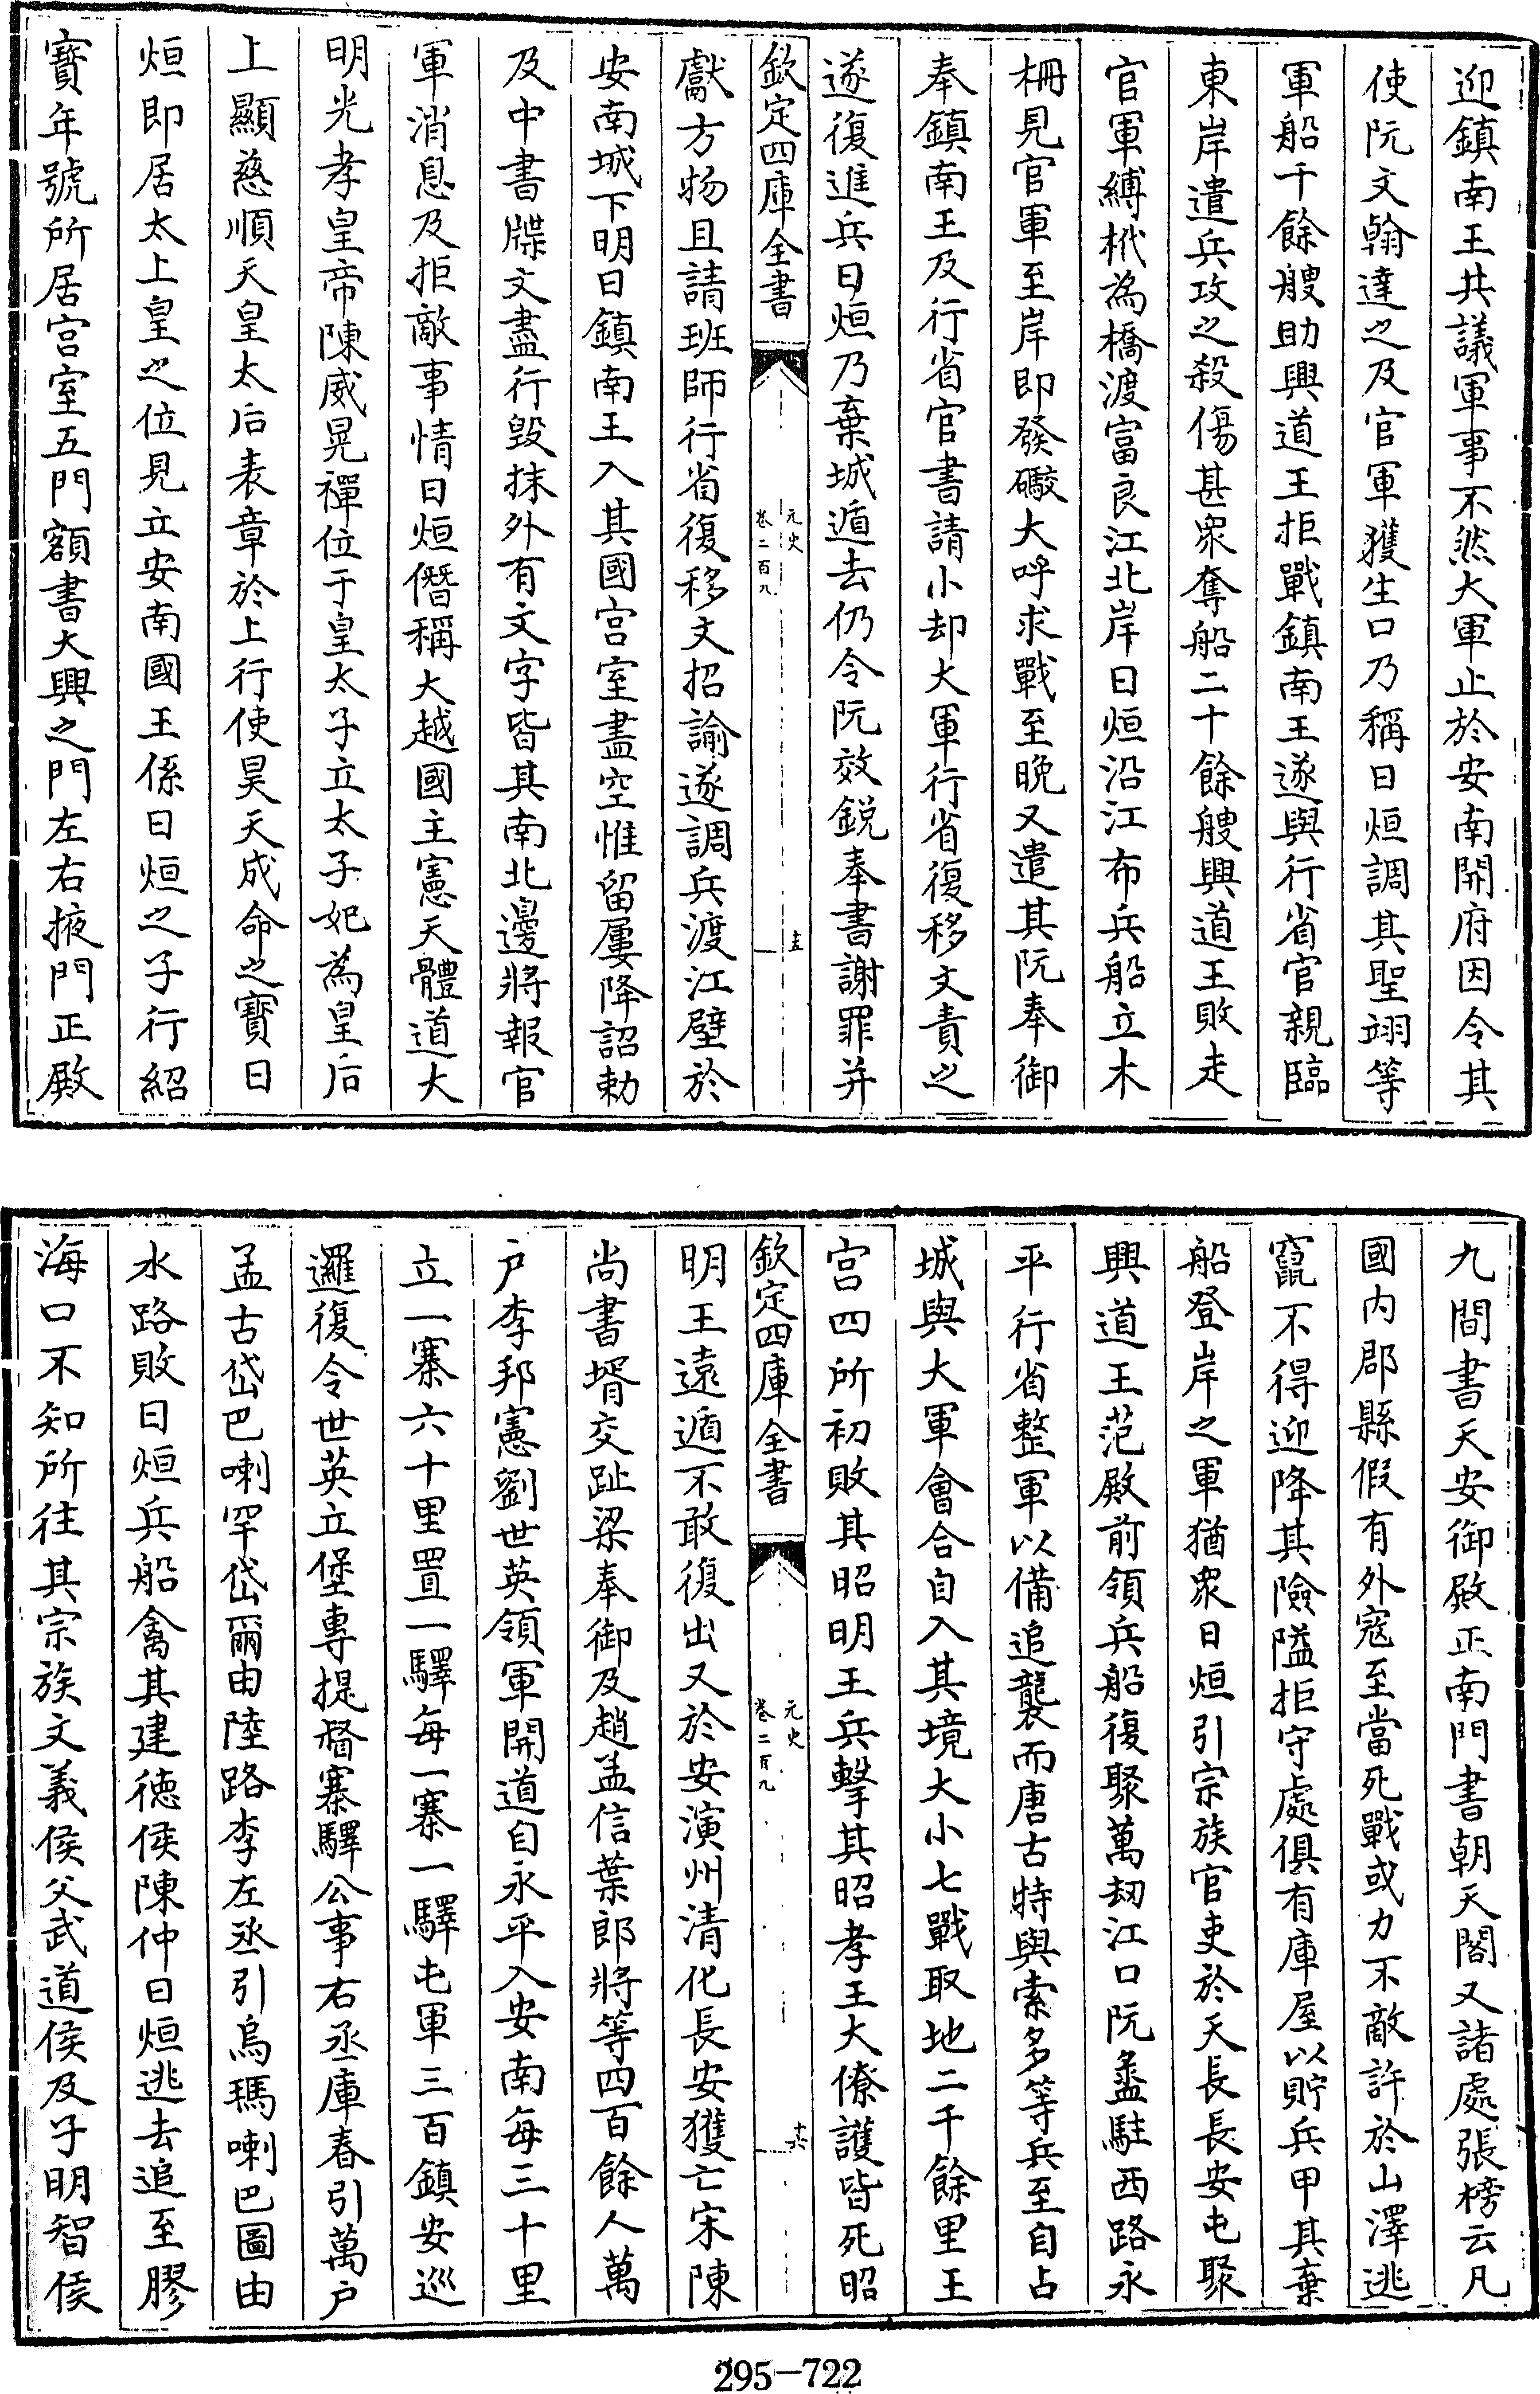 迎鎮南王共議軍事不然大軍止於安南開府因令其
使阮文翰達之及官軍獲生口乃稱日烜調其聖翊等
軍船千餘艘助興道王拒戰鎮南王遂與行省官親臨
東岸遣兵攻之殺傷甚衆奪船二十餘艘興道王敗走
官軍縛栰為橋渡富良江北岸日烜沿江布兵船立木
柵見官軍至岸即發礮大呼求戰至晚又遣其阮奉御
奉鎮南王及行省官書請小却大軍行省復移文責之
遂復進兵日烜乃棄城遁去仍令阮效鋭奉書謝罪并
欽定四庫全書
元史
卷二百九
十五
獻方物且請班師行省復移文招諭遂調兵渡江壁於
安南城下明日鎮南王入其國宫室盡空惟留屢降詔勅
及中書牒文盡行毁抹外有文字皆其南北邊將報官
軍消息及拒敵事情日烜僭稱大越國主憲天體道大
明光孝皇帝陳威晃禪位于皇太子立太子妃為皇后
上顯慈順天皇太后表章於上行使昊天成命之寳日
烜即居太上皇之位見立安南國王係日烜之子行紹
寳年號所居宫室五門額書大興之門左右掖門正殿
九間書天安御殿正南門書朝天閣又諸處張榜云凡
國内郡縣假有外寇至當死戰或力不敵許於山澤逃
竄不得迎降其險隘拒守處俱有庫屋以貯兵甲其棄
船登岸之軍猶衆日烜引宗族官吏於天長長安屯聚
興道王范殿前領兵船復聚萬刼江口阮盝駐西路永
平行省整軍以備追襲而唐古特與索多等兵至自占
城與大軍會合自入其境大小七戰取地二千餘里王
宫四所初敗其昭明王兵擊其昭孝王大僚護皆死昭
欽定四庫全書
元史
卷二百九
十六
明王遠遁不敢復出又於安演州清化長安獲亡宋陳
尚書壻交趾梁奉御及趙孟信葉郎將等四百餘人萬
户李邦憲劉世英領軍開道自永平入安南每三十里
立一寨六十里置一驛每一寨一驛屯軍三百鎮安巡
邏復令世英立堡專提督寨驛公事右丞庫春引萬户
孟古岱巴喇罕岱爾由陸路李左丞引烏瑪喇巴圖由
水路敗日烜兵船禽其建徳侯陳仲日烜逃去追至膠
海口不知所往其宗族文義侯父武道侯及子明智侯
295-722